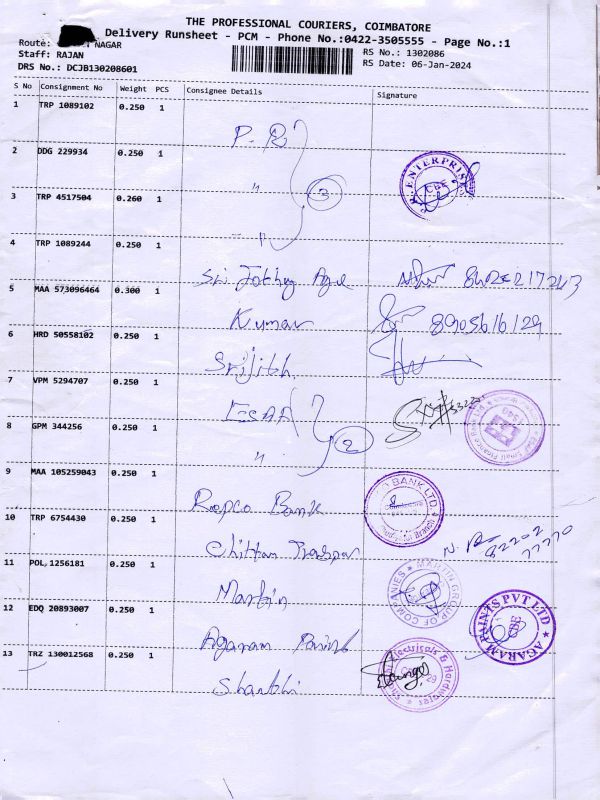 THE PROFESSIONAL COURIERS, COIMBATORE
Delivery Runsheet - PCM - Phone No.:0422-3505555 - Page No.:1
Route: NAGAR
Staff: RAJAN
DRS No.: DCJB130208601
RS No.: 1302086
RS Date: 06-Jan-2024
S No Consignment No Weight PCS Consignee Details Signature
1 TRP 1089102 0.250 1 P. R
2 DDG 229934 0.250 1 "
R. ENTERPRISE
CBE
3 TRP 4517504 0.260 1 "
3
4 TRP 1089244 0.250 1 Sri Jothy
5 MAA 573096464 0.300 1 Kumar
6 HRD 50558102 0.250 1 Srijith
7 VPM 5294707 0.250 1 ESAF
8 GPM 344256 0.250 1 "
2
9 MAA 105259043 0.250 1 Repco Bank
BANK LTD.
10 TRP 6754430 0.250 1
92202
77770
11 POL 1256181 0.250 1 Martin
MARTIN GROUP OF COMPANIES
12 EDQ 20893007 0.250 1 Agaram Paints
AGARAM PAINTS PVT LTD
CBE
13 TRZ 130012568 0.250 1
Electricals & Hardwares